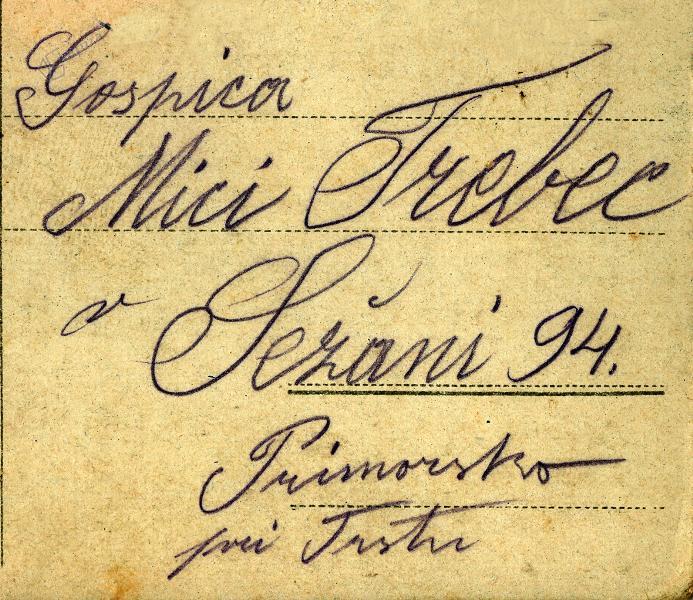 Gospica
Mici Trebec
v Sežani 94.
Primorsko
pri Trstu